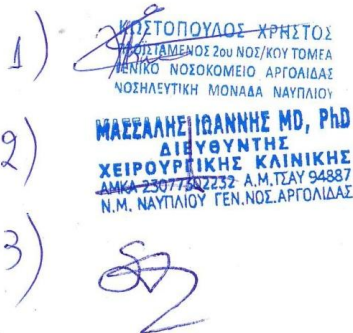 1)
ΚΩΣΤΟΠΟΥΛΟΣ ΧΡΗΣΤΟΣ
ΠΡΟΪΣΤΑΜΕΝΟΣ 2ου ΝΟΣ/ΚΟΥ ΤΟΜΕΑ
ΓΕΝΙΚΟ ΝΟΣΟΚΟΜΕΙΟ ΑΡΓΟΛΙΔΑΣ
ΝΟΣΗΛΕΥΤΙΚΗ ΜΟΝΑΔΑ ΝΑΥΠΛΙΟΥ
2)
ΜΑΣΣΑΛΗΣ ΙΩΑΝΝΗΣ MD, PhD
ΔΙΕΥΘΥΝΤΗΣ
ΧΕΙΡΟΥΡΓΙΚΗΣ ΚΛΙΝΙΚΗΣ
ΑΜΚΑ Α.Μ.ΤΣΑΥ 94887
Ν.Μ. ΝΑΥΠΛΙΟΥ ΓΕΝ.ΝΟΣ.ΑΡΓΟΛΙΔΑΣ
3)